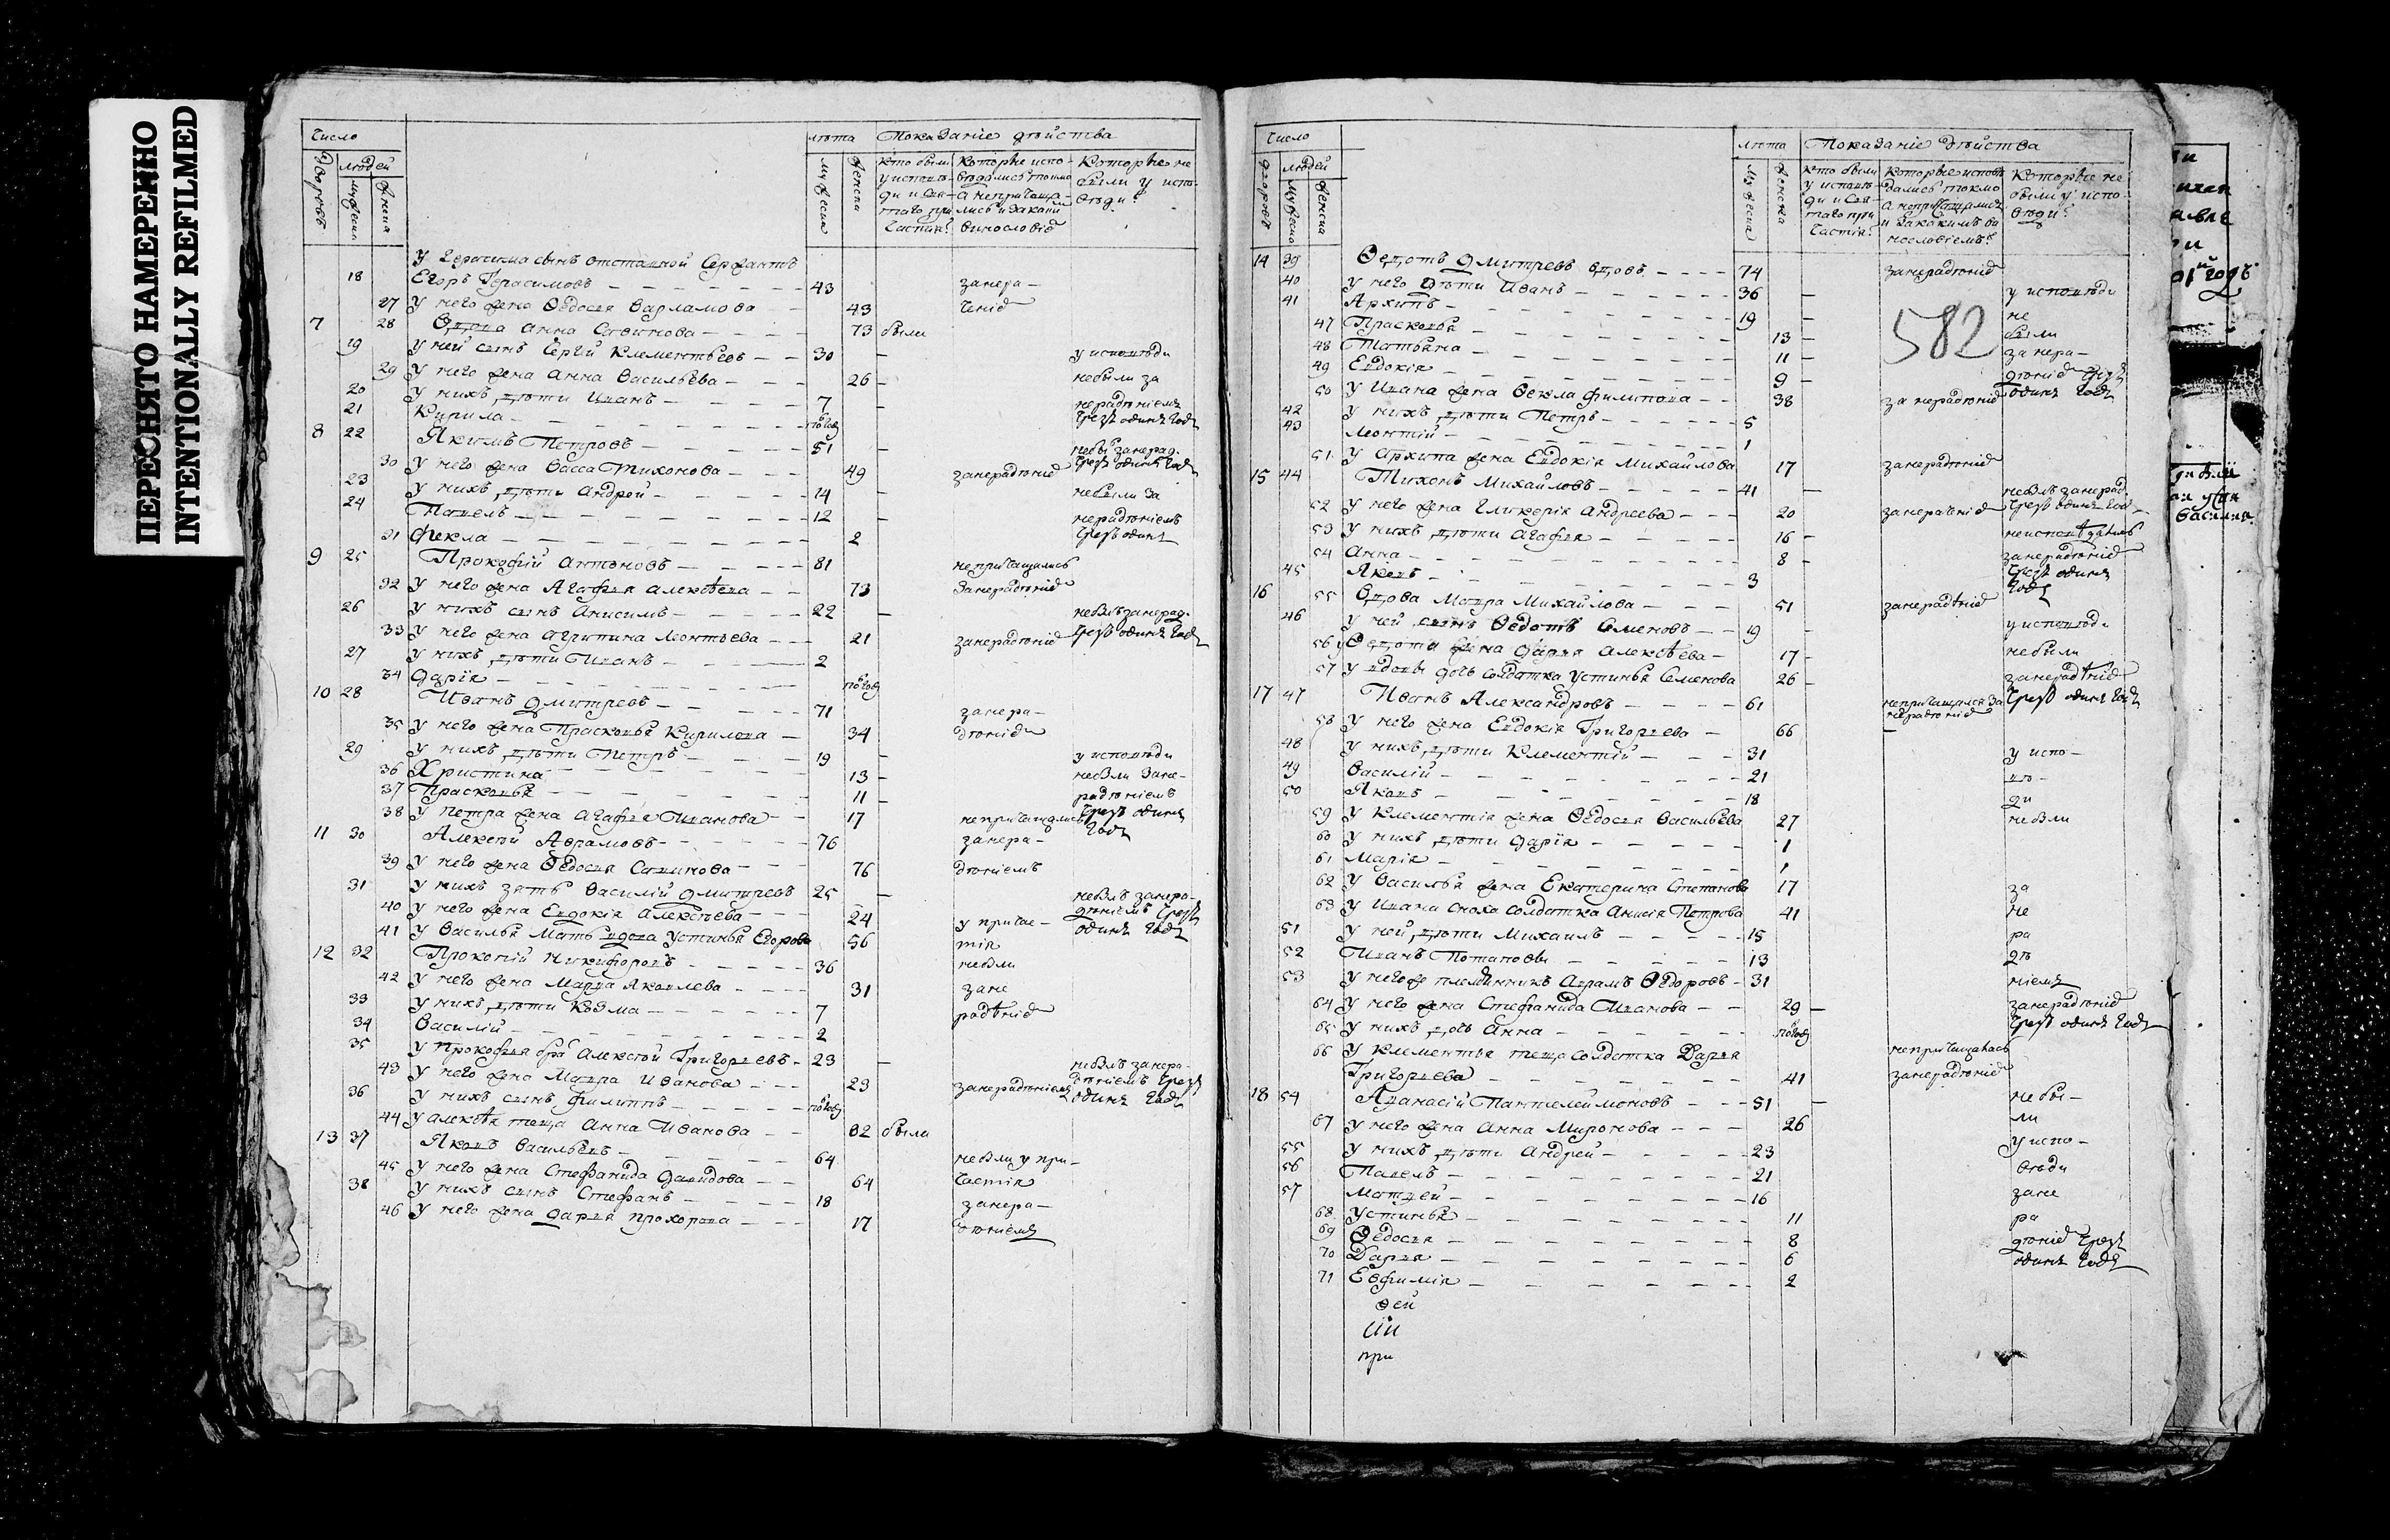 ПЕРЕСНЯТО НАМЕРЕННО
INTENTIONALLY REFILMED
Число
лѣта Показаніе дѣйства
дворовъ людей
мужеска женска
мужеска женска
Кто были у исповѣди и святаго причастія?
Которые исповѣдались токмо а непричащались и за каким винословіе
Которые не были у исповѣди?
У Герасима сынъ отставной Сержантъ
18 Егоръ Герасимовъ 43 занера-
27 У него жена Ѳедосья Варламова 43
7 28 Вдова Анна Савинова 73 были
19 У ней сынъ Сергй Клементьевъ 30 у исповѣди
29 У него жена Анна Васильева 26 небыли за
20 У нихъ дѣти Иванъ 7 нерадѣніемъ
21 Курила полгод чрезъ одинъ годъ
8 22 Якимъ Петровъ 51 небы занерад.
30 У него жена Васса Тихонова 49 занерадѣніе чрезъ одинъ годъ
23 У нихъ дѣти Андрей 14 небыли за
24 Павелъ 12 нерадѣніемъ
31 Фекла 2 чрезъ одинъ
9 25 Прокофій Антоновъ 81 непричащались
32 У него жена Агафья Алексѣева 73 Занерадѣніе
26 У нихъ сынъ Анисимъ 22 небылъ занерад.
33 У него жена Агрипина Леонтьева 21 занерадѣніе чрезъ одинъ годъ
27 У нихъ дѣти Иванъ 2
34 Дарія полгод
10 28 Иванъ Дмитревъ 71 занера-
35 У него жена Прасковья Кирилова 34 дѣніе
29 У нихъ дѣти Петръ 19 у исповѣди
36 Христина 13 небыли Зане-
37 Прасковья 11 радѣніемъ
38 У Петра жена Агафья Иванова 17 непричащались чрезъ одинъ годъ
11 30 Алексѣй Аврамовъ 76 занера-
39 У него жена Ѳедосья Савинова 76 дѣніемъ
31 У нихъ зять Василій Дмитревъ 25 небылъ занера-
40 У него жена Евдокія Алексѣева 24 у причас- дѣніемъ чрезъ
41 У Василья мать вдова Устинья Егорова 56 тія одинъ годъ
12 32 Прокопій Никифоровъ 36 небыли
42 У него жена Марья Яковлева 31 зане
33 У нихъ дѣти Козма 7 радѣніе
34 Василій 2
35 У Прокофья бра Алексѣй Григорьевъ 23 небылъ занера-
43 У него жена Мавра Иванова 23 занерадѣніемъ дѣніемъ чрезъ
36 У нихъ сынъ Филиппъ полгод одинъ годъ
44 У Алексѣя теща Анна Иванова 82 были
13 37 Яковъ Васильевъ 64 небыли у при-
45 У него жена Стефанида Давидова 64 частія
38 У нихъ сынъ Стефанъ 18 занера-
46 У него жена Дарья Прохорова 17 дѣніемъ
Число
лѣта Показаніе дѣйства
дворовъ людей
мужеска женска
мужеска женска
Кто были у исповѣди и святаго причастія?
Которые исповѣдались токмо а непричащались и за какимъ винословіемъ?
Которые не были у исповѣди?
582
14 39 Ѳедотъ Дмитревъ вдовъ 74 занерадѣніе
40 У него дѣти Иванъ 36 у исповѣди
41 Архипъ 19 не
47 Прасковья 13 были
48 Татьяна 11 за нера-
49 Евдокія 9 дѣніе чрезъ
50 У Ивана жена Ѳекла Филипова 38 за нерадѣніе одинъ годъ
42 У нихъ дѣти Петръ 5
43 Леонтій 1
51 У Архипа жена Евдокія Михайлова 17 занерадѣніе
15 44 Тихонъ Михайловъ 41 небылъ занерад.
52 У него жена Гликерія Андреева 20 чрезъ одинъ год
53 У нихъ дѣти Агафья 16
54 Анна 8 занерадѣніе
45 Яковъ 3 чрезъ одинъ годъ
16 55 Вдова Мавра Михайлова 51 занерадѣніе
46 У ней сынъ Ѳедотъ Семеновъ 19 у исповѣди
56 У Ѳедота жена Дарья Алексѣева 17 небыли
57 У вдовы дочь солдатка Устинья Семенова 26 занерадѣніе
17 47 Иванъ Александровъ 61 непричащался за нерадѣніе чрезъ одинъ годъ
58 У него жена Евдокія Григорьева 66
48 У нихъ дѣти Климентій 31 у испо-
49 Василій 21 вѣ-
50 Яковъ 18 ди
59 У Клементія жена Ѳедосья Васильева 27 небыли
60 У нихъ дѣти Дарія 1
61 Марія 1
62 У Василья жена Екатерина Степанова 17 за
63 У Ивана сноха солдатка Анисія Петрова 41 не
51 У ней дѣти Михаилъ 15 ра
52 Иванъ Потаповы 13 дѣ
53 У негоже племянникъ Аврамъ Ѳедоровъ 31 ніемъ
64 У него жена Стефанида Иванова 29 занерадѣніе
65 У нихъ дочь Анна полгод чрезъ одинъ годъ
66 У Клементья теща солдатка Дарья непричащалась
Григорьева 41 занерадѣніе
18 54 Аѳанасій Пантелеймоновъ 51 небы-
67 У него жена Анна Миронова 26 ли
55 У нихъ дѣти Андрей 23 у испо-
56 Павелъ 21 вѣди
57 Матвей 16 зане
68 Устинья 11 ра
69 Ѳедосья 8 дѣніе чрезъ
70 Дарья 6 одинъ годъ
71 Евфимія 2
ѳей
при